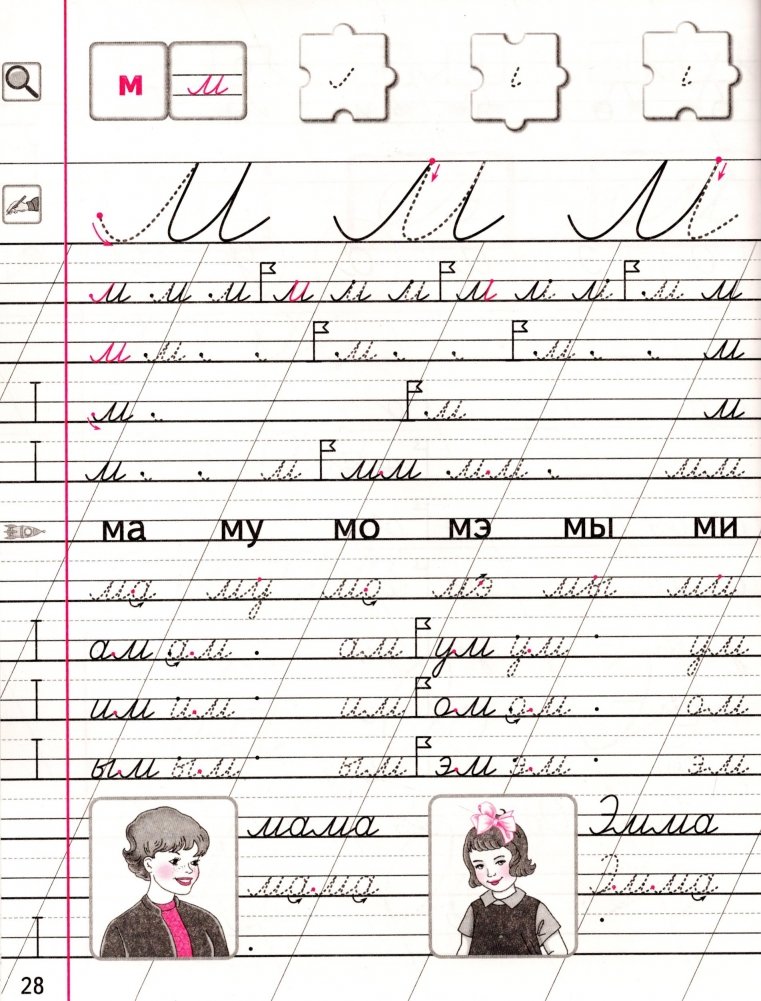 м м
м м м м м м м м м м м
м м м м м
м м м
м м мм мм мм
ма му мо мэ мы ми
ма му мо мэ мы ми
ам ам ам ум ум ум
им им им ом ом ом
ым ым ым эм эм эм
мама Эмма
мама Эмма
28